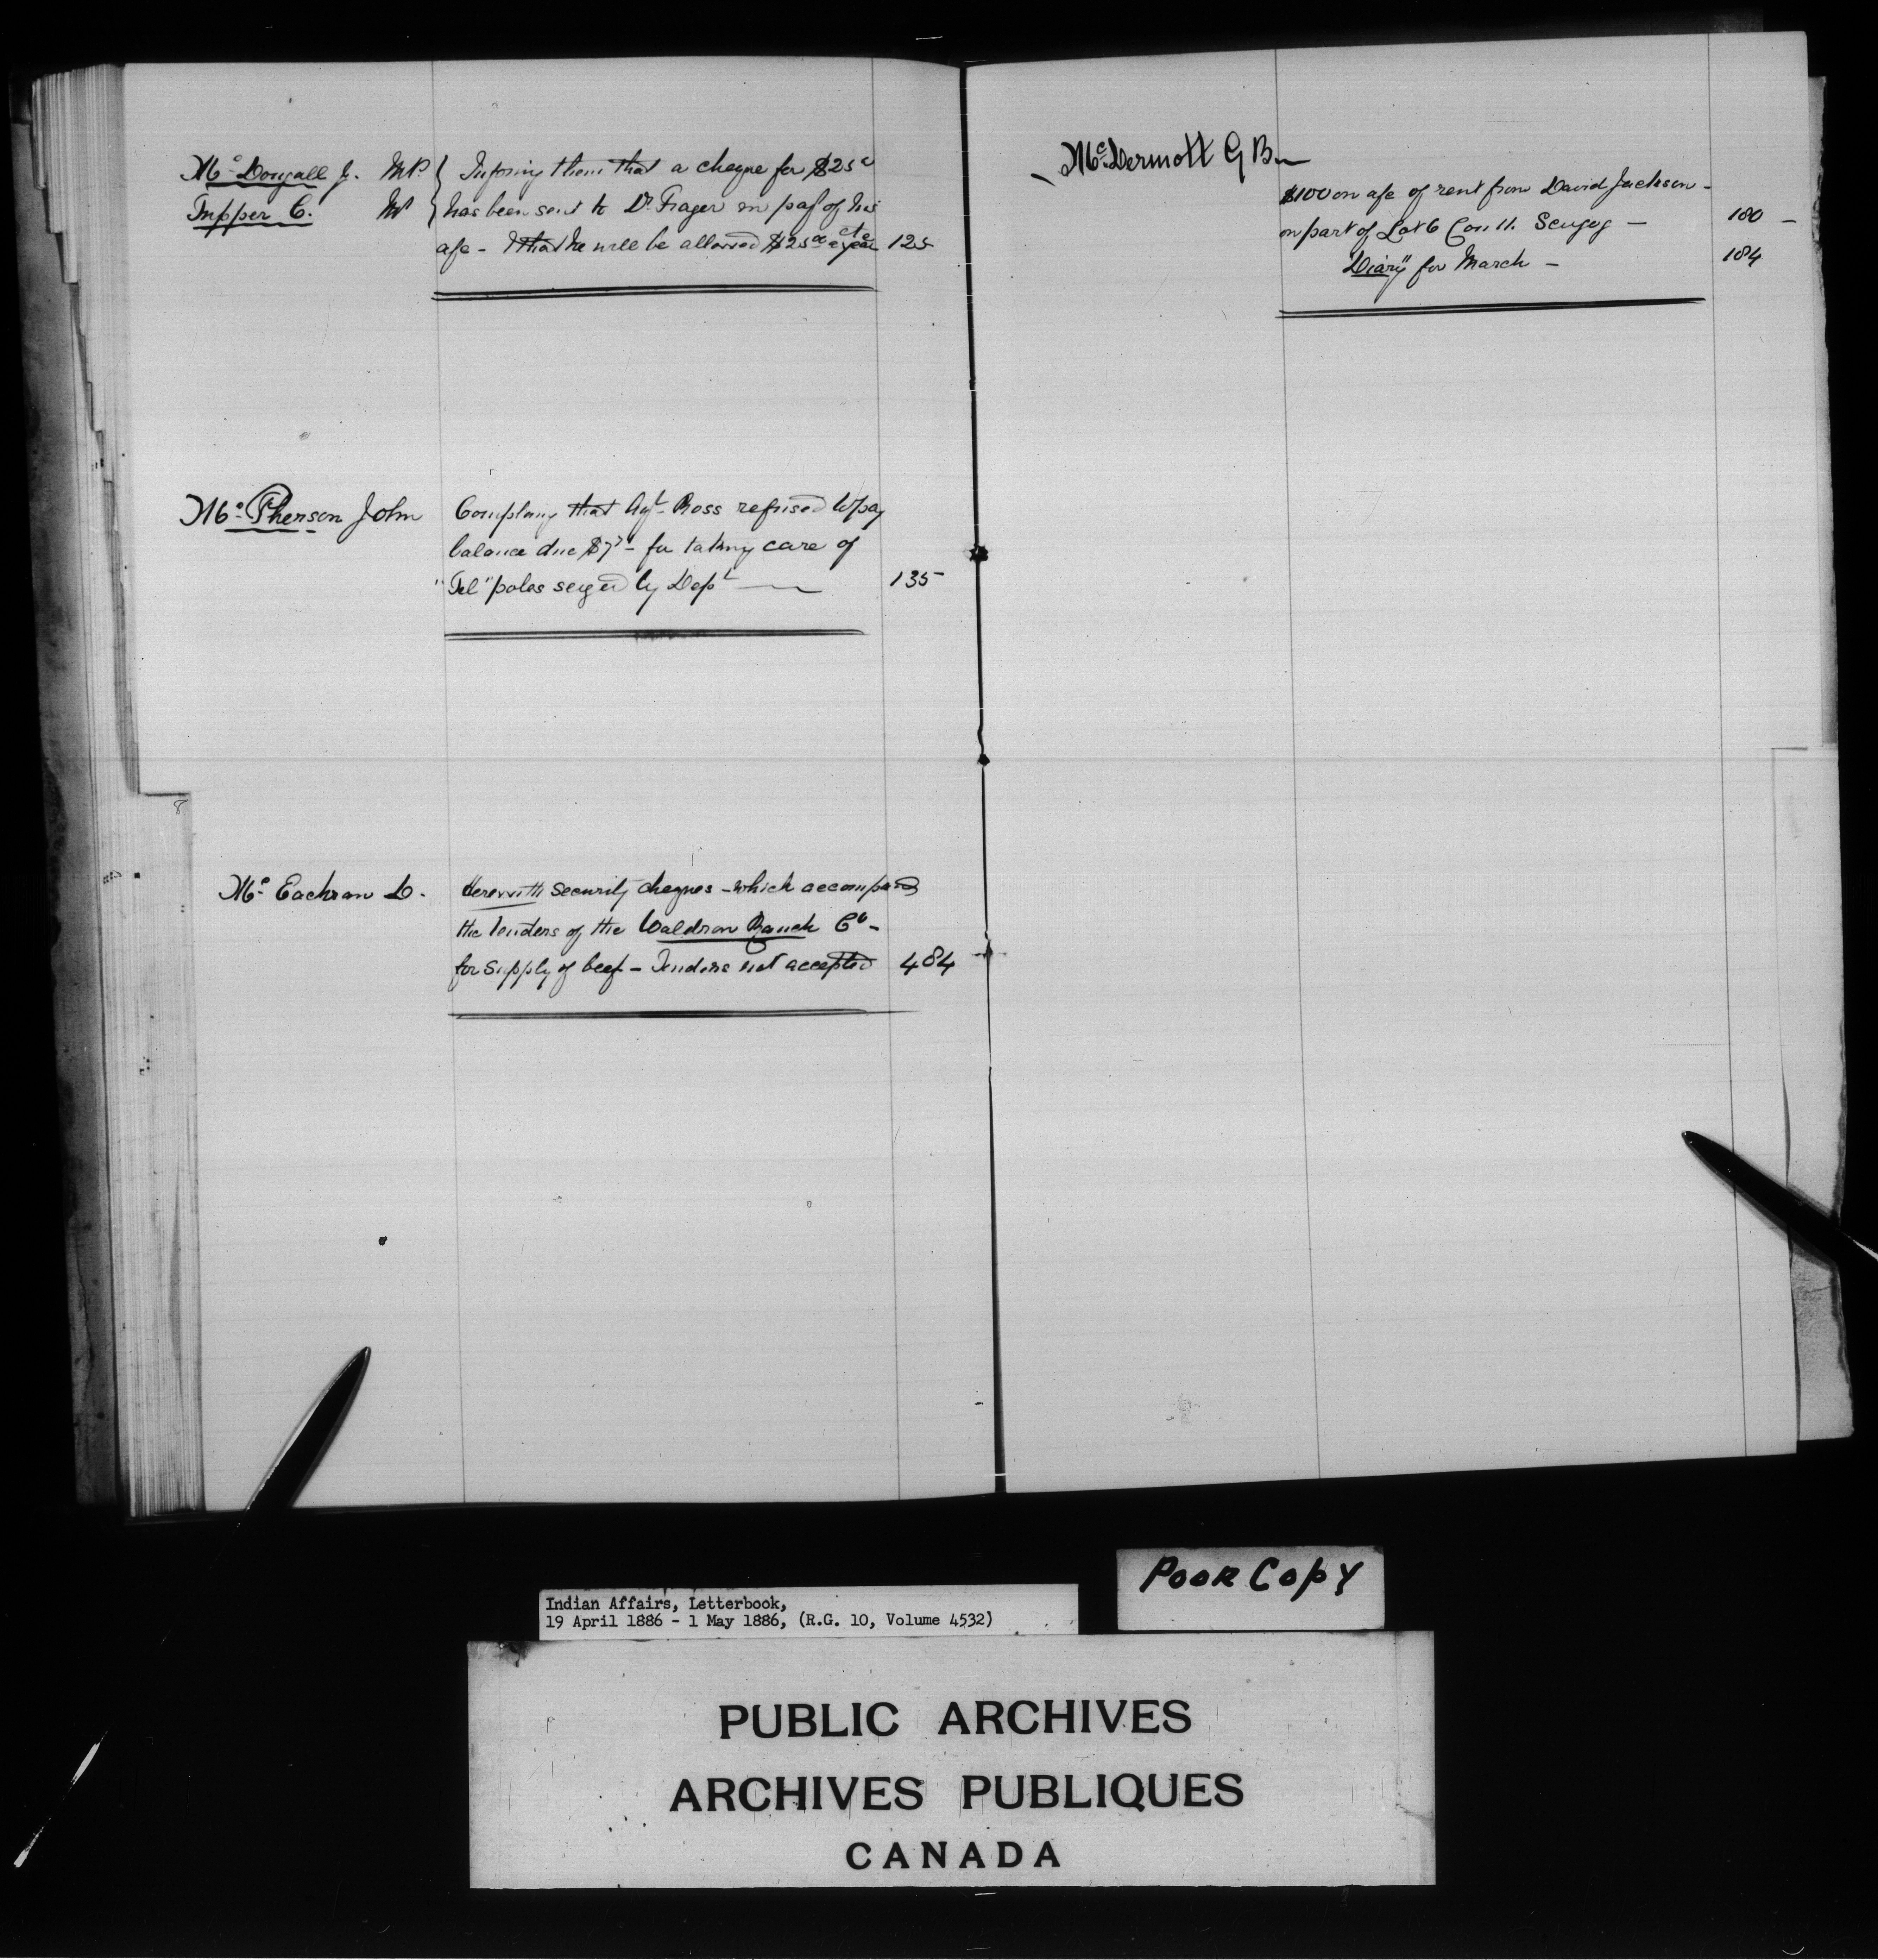 Mc Dougall J. MP
Tupper C. MP
Infosing them that a cheque for $25
has been sent to Dr Frager in pay of his
a/c - & that he will be allowed $25 a year 125
Mc Pherson John
Complaing that Agt Ross refused to pay
balance due $7 - for taking care of
"Tel" poles seized by Dept 135
Mc Eachran D.
Herewith security cheques - which accompand
the tenders of the Waldron Ranch Co -
for supply of beef - Tenders not accepted 484
McDermott G B
$100 on a/c of rent from David Jackson -
on part of Lot 6 Con 11. Scugog - 180 -
"Diary" for March - 184
POOR COPY
Indian Affairs, Letterbook,
19 April 1886 - 1 May 1886, (R.G. 10, Volume 4532)
PUBLIC ARCHIVES
ARCHIVES PUBLIQUES
CANADA